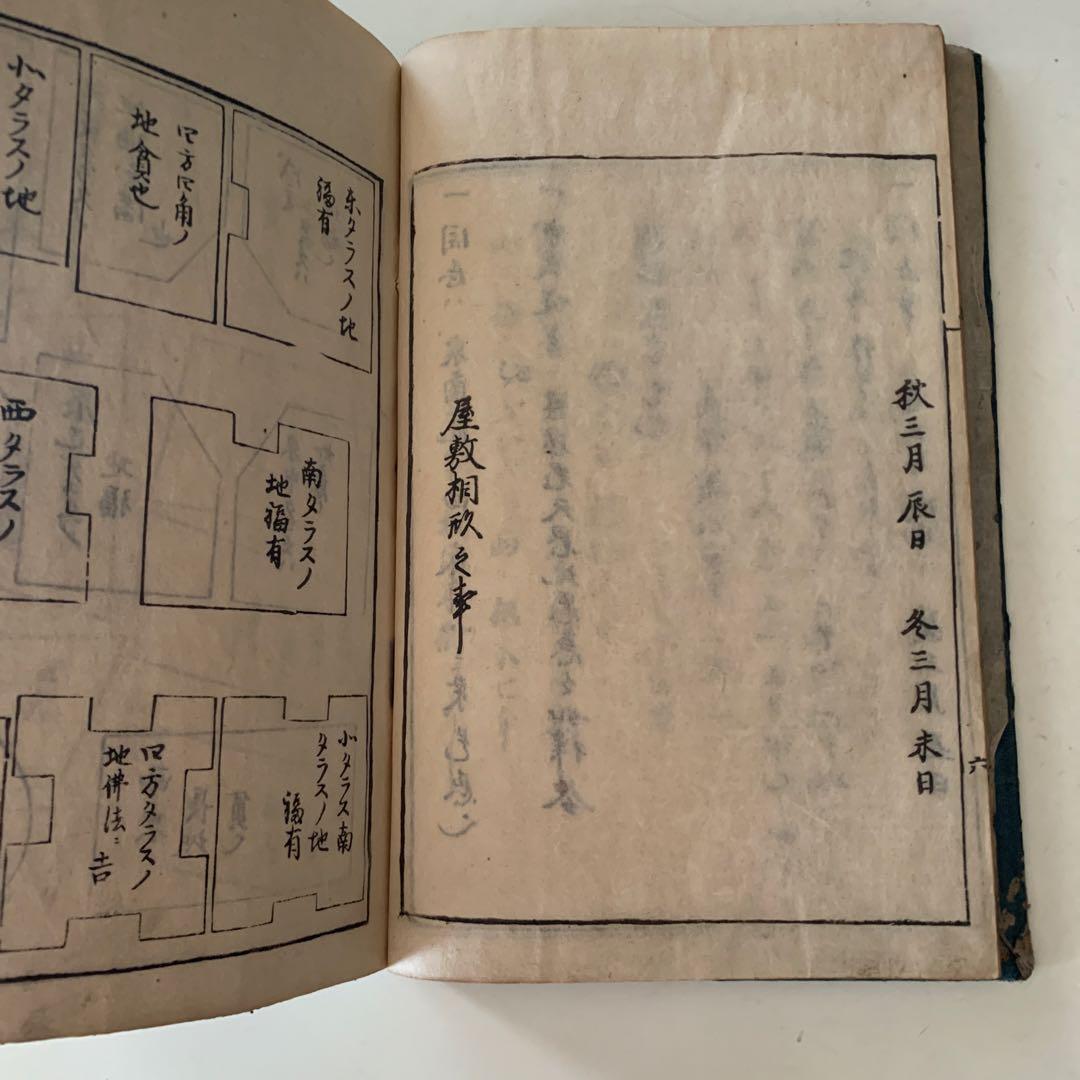 秋三月辰日 冬三月未日
屋敷相形之事
六
東タラスノ地
福有
四方四角ノ
地貧也
北タラスノ地
南タラスノ
地福有
西タラスノ
北タラス南
タラスノ地
福有
四方タラスノ
地佛法ニ吉